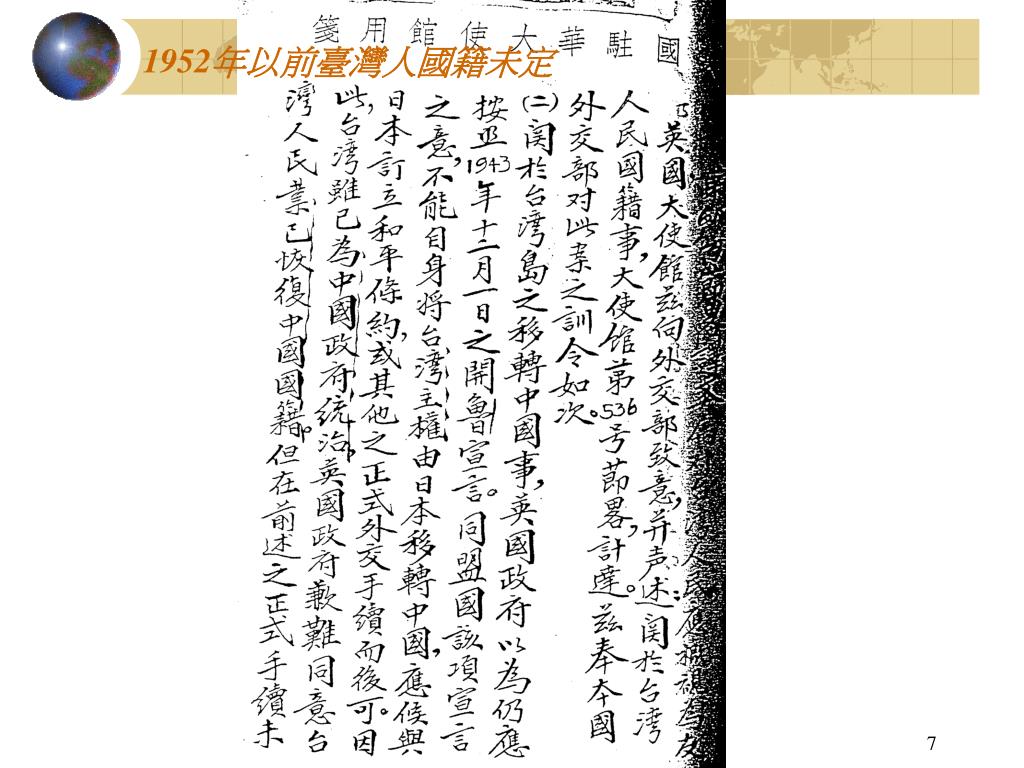 國駐華大使館用箋
1952年以前臺灣人國籍未定
英國大使館茲向外交部致意,并声述:関於台湾
人民國籍事,大使館第536号節畧,計達。茲奉本國
外交部对此案之訓令如次。
(二)関於台湾島之移轉中國事,英國政府以為仍應
按照1943年十二月一日之開魯宣言。同盟國該項宣言
之意,不能自身将台湾主權由日本移轉中國,應候與
日本訂立和平條約,或其他之正式外交手續而後可。因
此,台湾雖已為中國政府統治,英國政府歉難同意台
灣人民業已恢復中國國籍。但在前述之正式手續未
7